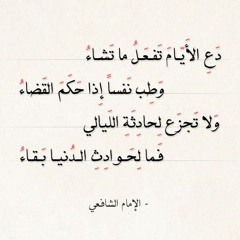 دَعِ الأَيّامَ تَفعَلُ ما تَشاءُ
وَطِب نَفساً إِذا حَكَمَ القَضاءُ
وَلا تَجزَع لِحادِثَةِ اللَيالي
فَما لِحَوادِثِ الدُنيا بَقاءُ
- الإمام الشافعي